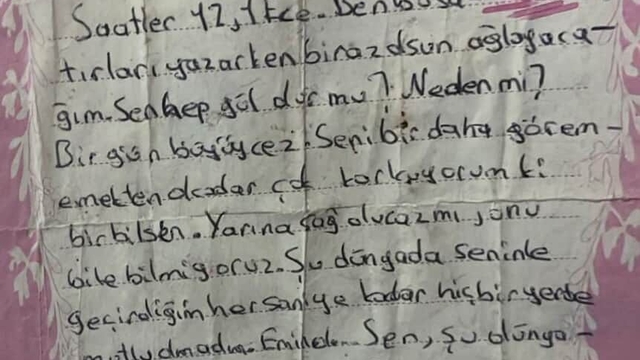 Saatler 12, 1 ece. Ben bu sa
tırları yazarken biraz dsun ağlayaca-
ğım. Sen hep gül dur mu? Neden mi?
Bir gün büyüycez. Seni bir daha görem-
emekten okadar çok korkuyorum ki
bir bilsen. Yarına sağ olucazmı, onu
bile bilmiyoruz. Şu dünyada seninle
geçirdiğim her saniye kadar hiçbir yerde
mutlu olmadım. Eminol. Sen, şu dünya-